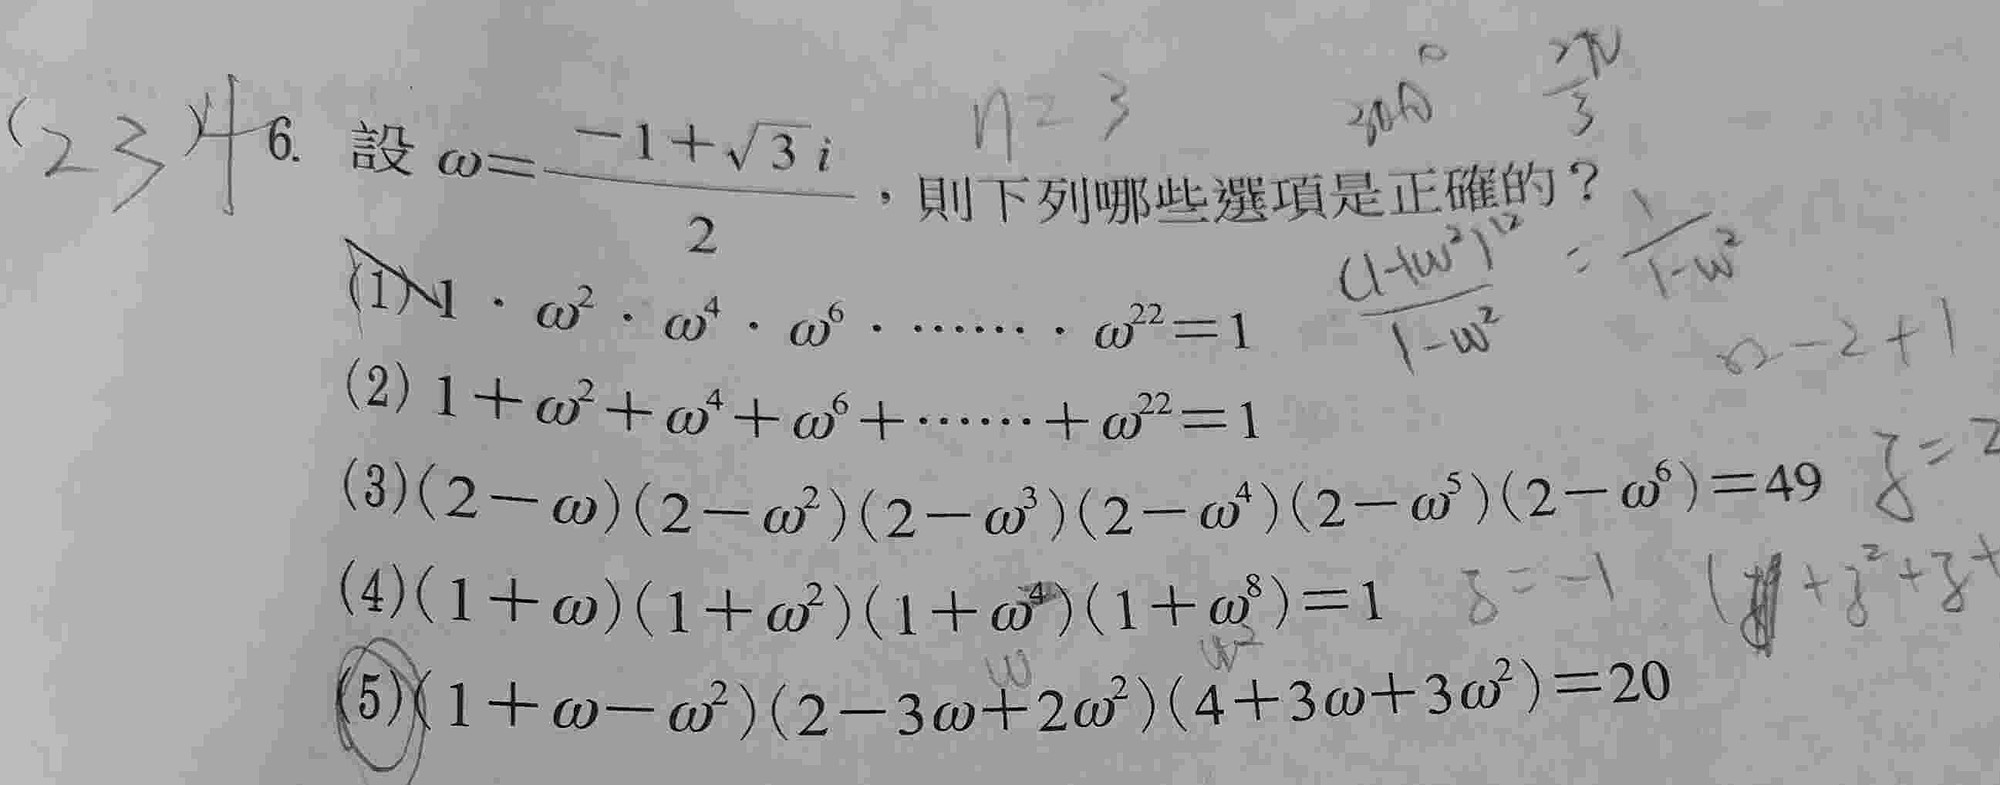 (2 3 4
n=3
2π/3
6. 設 ω=(-1+√3 i)/2,則下列哪些選項是正確的?
(1) 1·ω²·ω⁴·ω⁶·……·ω²²=1
(1-(ω²)¹²)/(1-ω²) = 1/(1-ω²)
n-2+1
(2) 1+ω²+ω⁴+ω⁶+……+ω²²=1
(3)(2-ω)(2-ω²)(2-ω³)(2-ω⁴)(2-ω⁵)(2-ω⁶)=49
z=2
(4)(1+ω)(1+ω²)(1+ω⁴)(1+ω⁸)=1
z=-1
+z²+z+
ω ω²
(5)(1+ω-ω²)(2-3ω+2ω²)(4+3ω+3ω²)=20